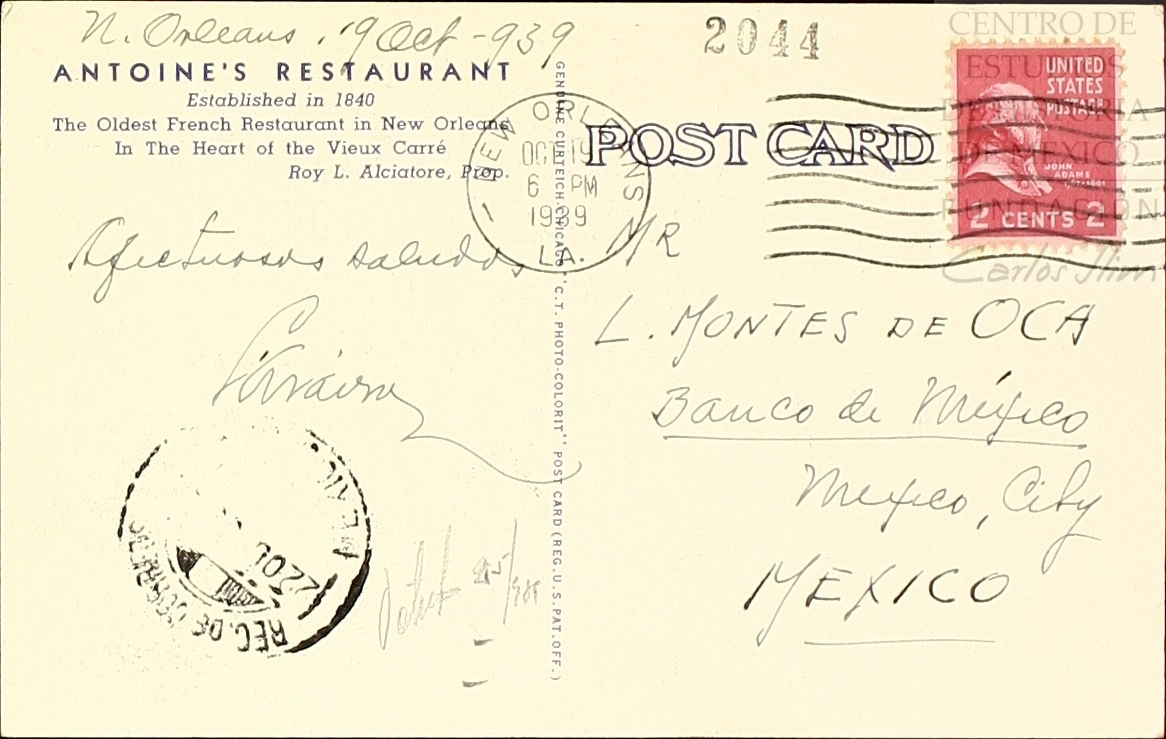 N. Orleans. 19 Oct - 939
2044
ANTOINE'S RESTAURANT
Established in 1840
The Oldest French Restaurant in New Orleans
In The Heart of the Vieux Carré
Roy L. Alciatore, Prop.
NEW ORLEANS
OCT 19
6 PM
1939
LA.
POST CARD
UNITED
STATES
POSTAGE
JOHN
ADAMS
2 CENTS 2
CENTRO DE
ESTUDIOS
DE HISTORIA
DE MÉXICO
FUNDACIÓN
Carlos Slim
Afectuosos saludos
GENUINE CURTEICH-CHICAGO "C.T. PHOTO-COLORIT" POST CARD (REG. U.S. PAT. OFF.)
MR
L. MONTES DE OCA
Banco de México
Mexico, City
MEXICO
22 OC